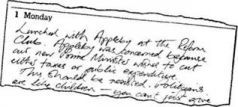 1 Monday
Lunched with Appleby at the Reform
Club. Appleby was concerned because
our new Prime Minister wants to cut
either taxes or public expenditure.
This should be resisted. Politicians
are like children – you can't just give